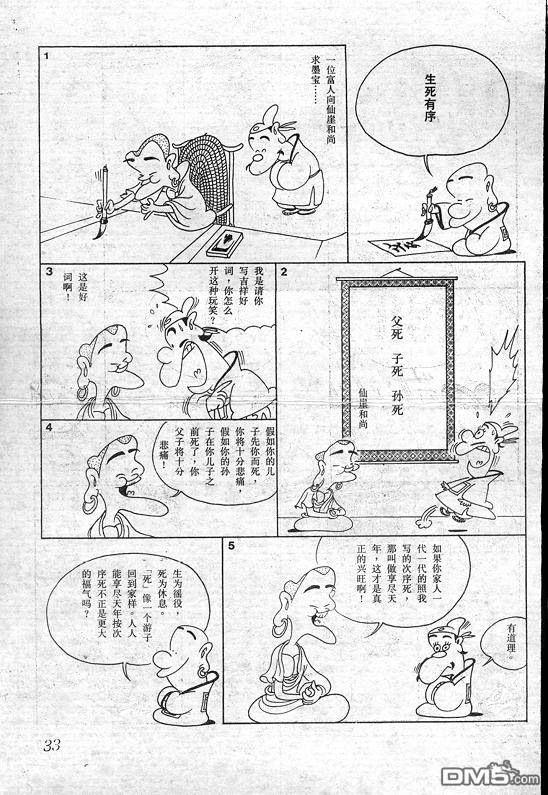 生死有序
1
一位富人向仙崖和尚
求墨宝……
2
父死 子死 孙死
仙崖和尚
3
我是请你
写吉祥好
词，你怎么
开这种玩笑？
这是好
词啊！
4
假如你的儿
子先你而死，
你将十分悲痛，
假如你的孙
子在你儿子之
前死了，你
父子将十分
悲痛！
5
如果你家人一
代一代的照我
写的次序死，
那叫做享尽天
年，这才是真
正的兴旺啊！
有道理。
生为徭役，
死为休息。
「死」像一个游子
回到家样。人人
能享尽天年按次
序死不正是更大
的福气吗？
33
DM5.com